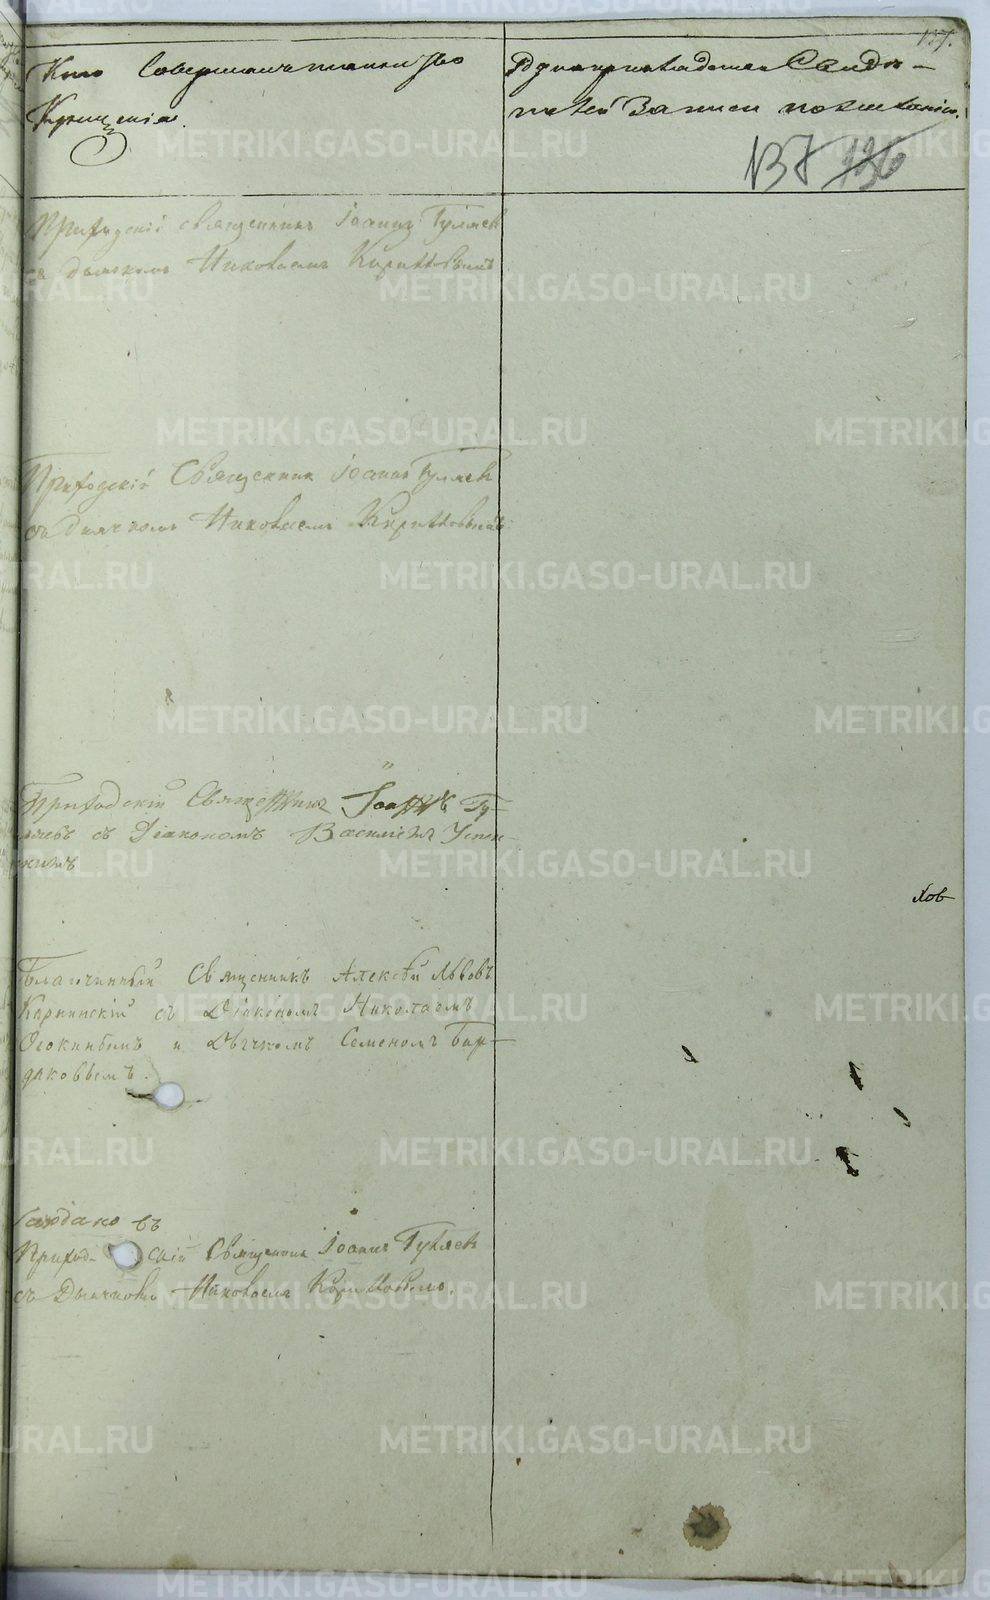 137.
Кто совершалъ таинство
Крещенія.
Рукоприкладство Свидѣ-
телей Записи по желанію.
137 136
Приходскій священникъ Іоаннъ Гуляевъ
съ дьячкомъ Николаемъ Кирилловымъ
Приходскій Священникъ Іоаннъ Гуляевъ
съ Дьячкомъ Николаемъ Кирилловымъ
Приходскій Священникъ Іоаннъ Гу-
ляевъ съ Діакономъ Василіемъ Успен-
скимъ
Благочинный Священникъ Алексѣй Львовъ
Карпинскій съ Діакономъ Николаемъ
Осокинымъ и Дьячкомъ Семеномъ Бур-
даковымъ.
Приходскій Священникъ Іоаннъ Гуляевъ
съ Дьячкомъ Николаемъ Кирилловымъ.
METRIKI.GASO-URAL.RU